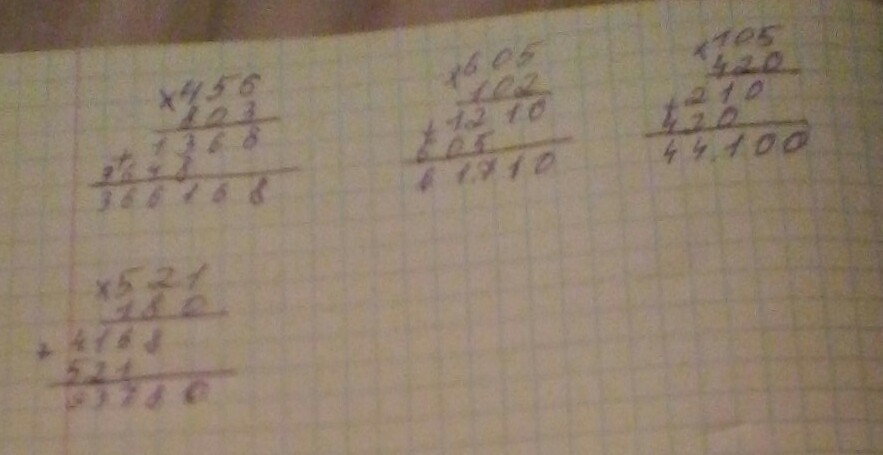 ×456
803
1368
+
3648
366168
×605
102
1210
+
605
61710
×105
420
210
+
420
44100
×521
180
+ 4168
521
93780